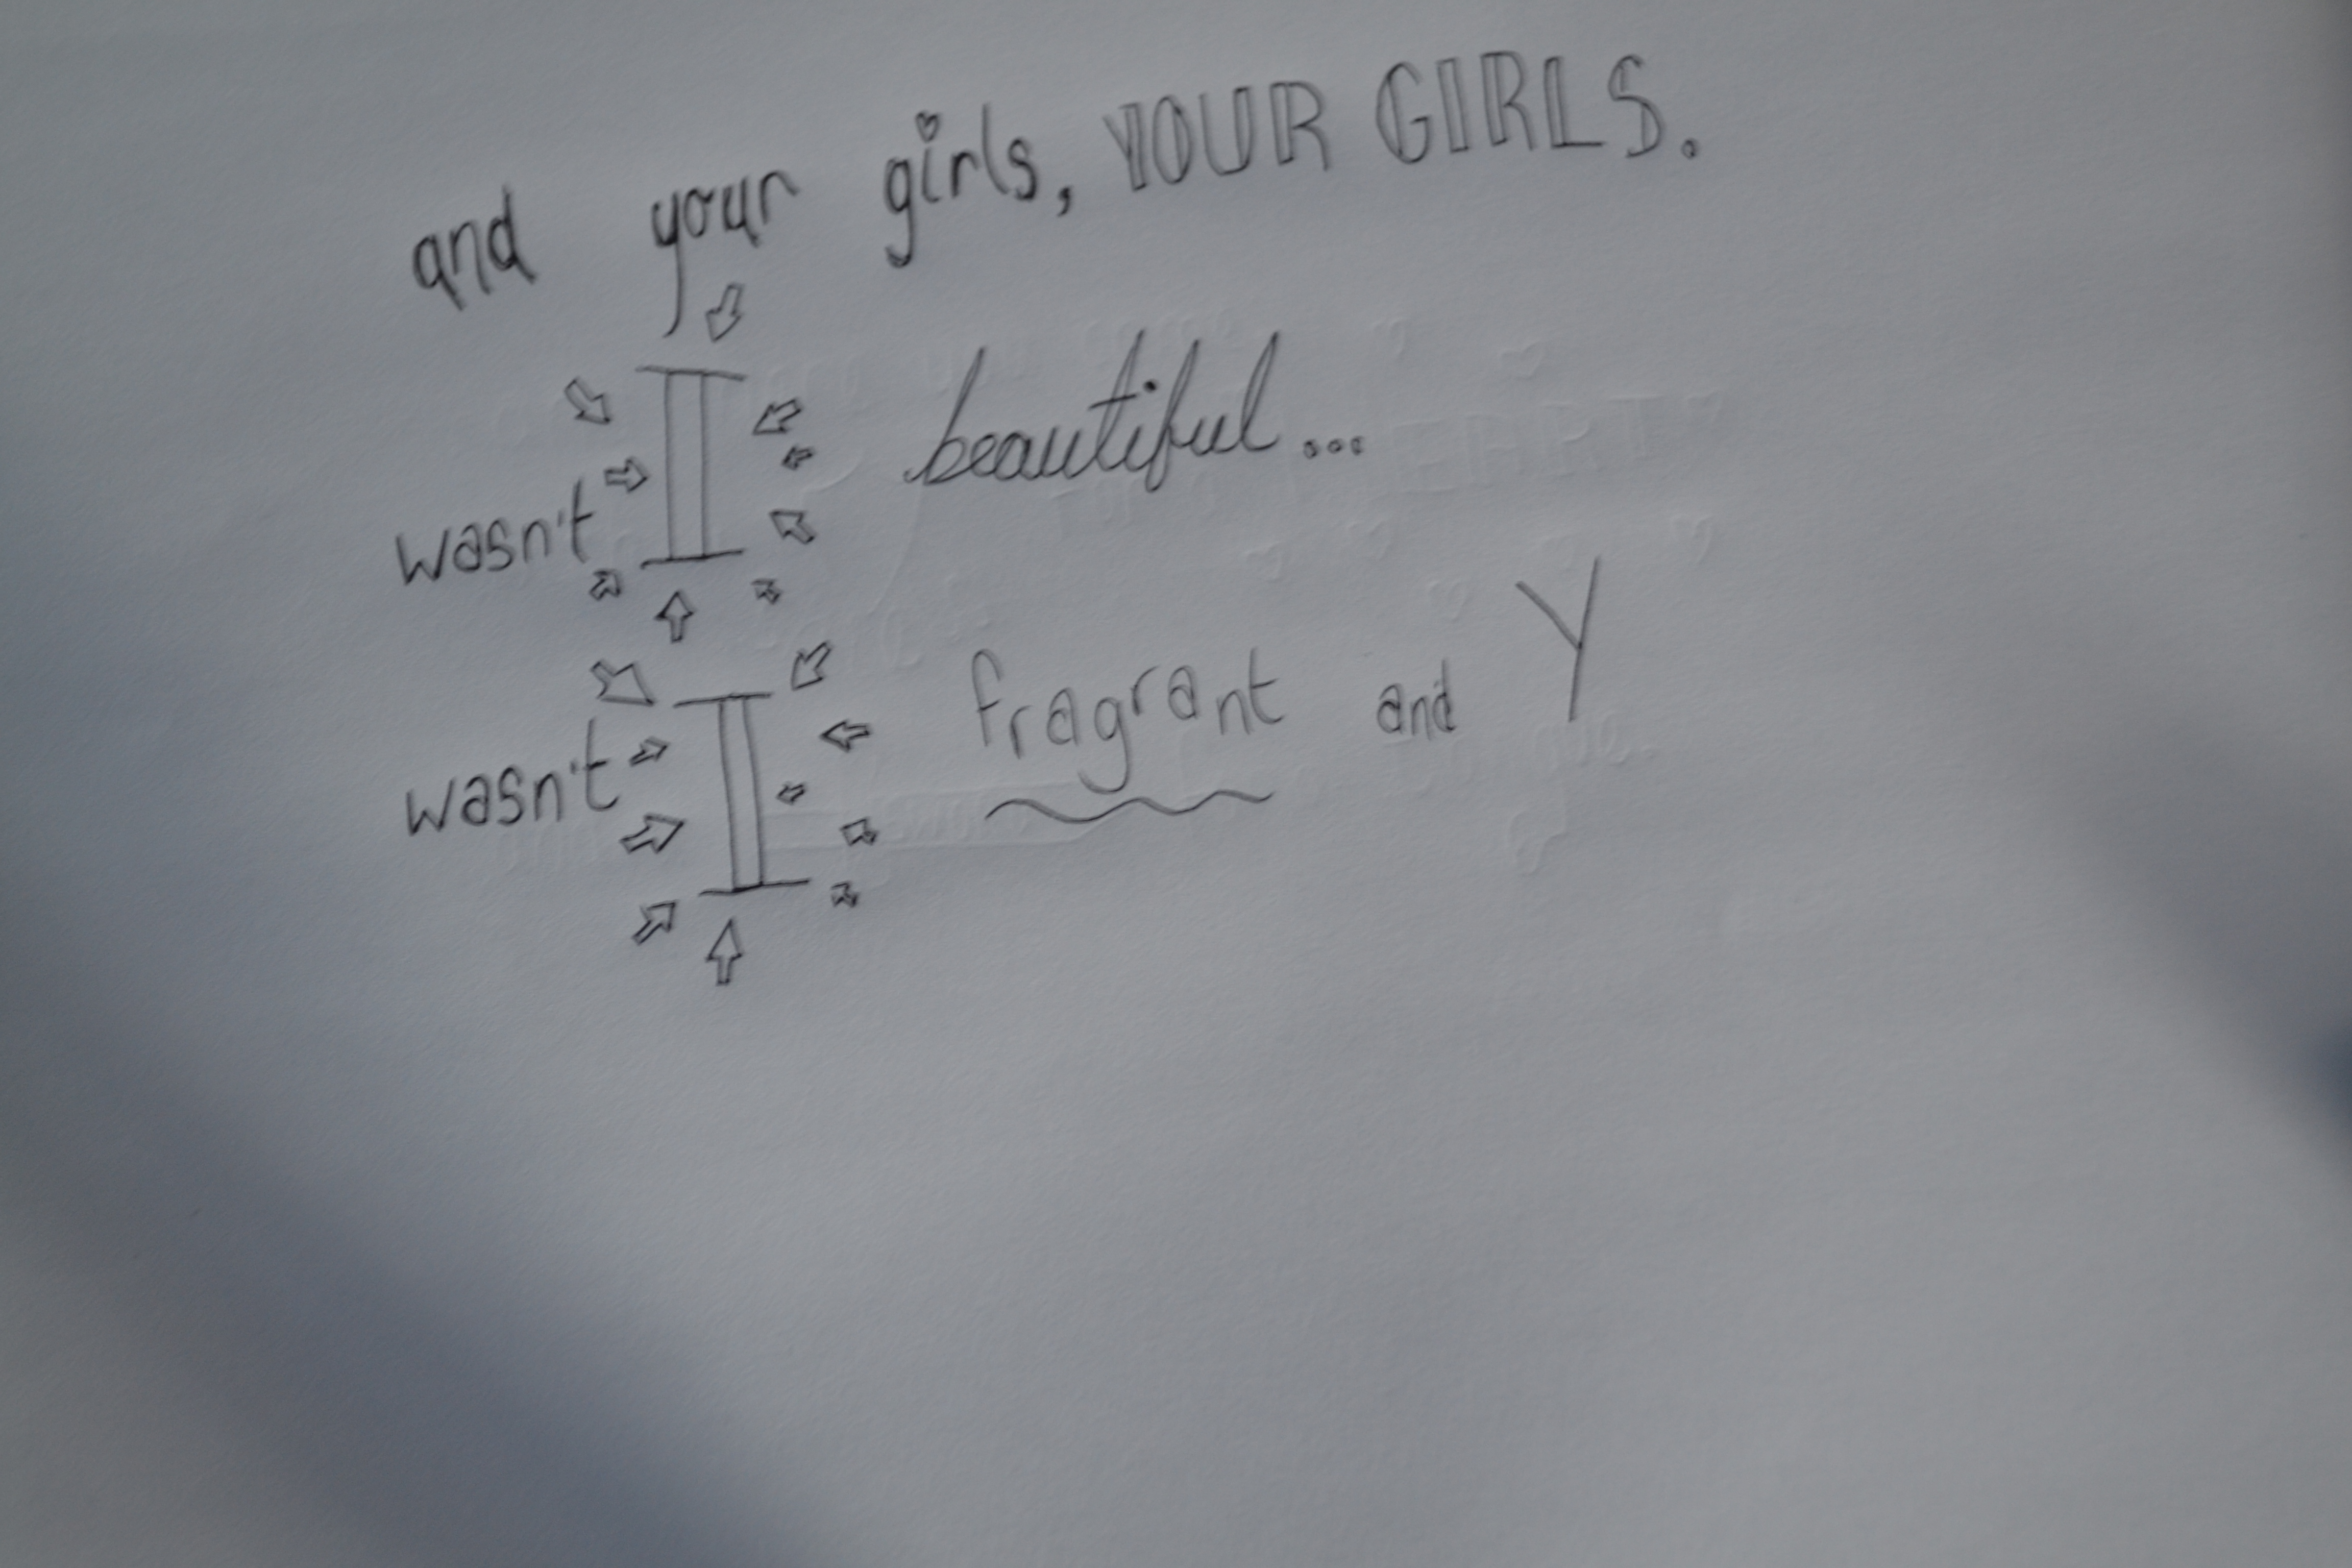 and your girls, YOUR GIRLS.
wasn't I beautiful...
wasn't I fragrant and Y